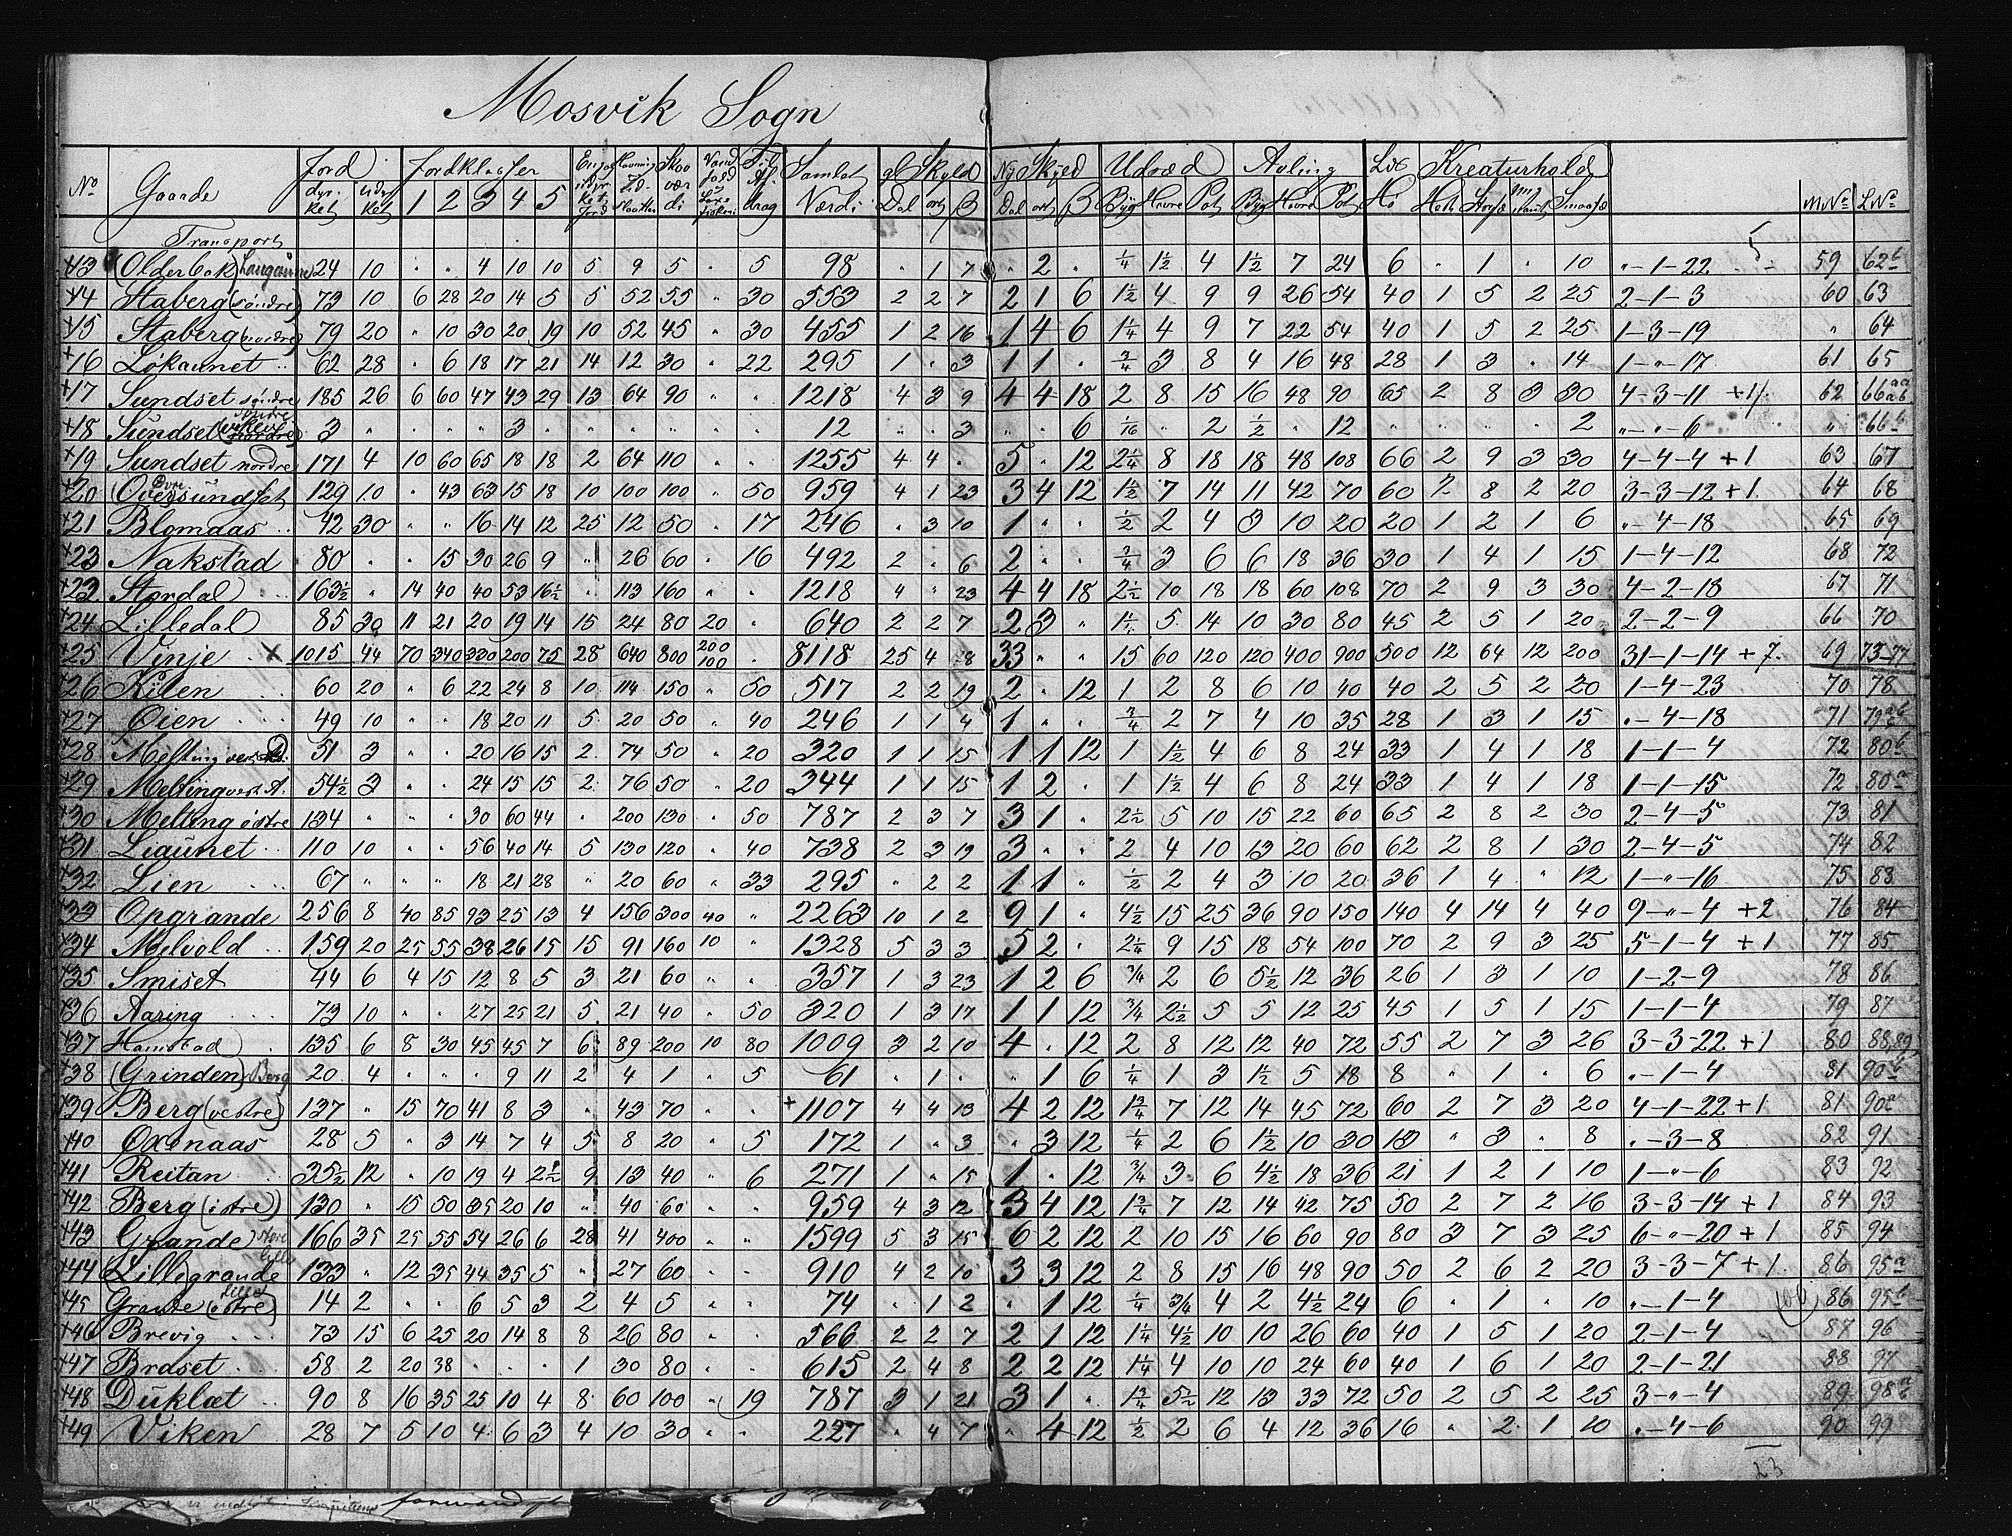 Mosvik Sogn
No Gaarde Jord Jordklasser Skov Samlet Værdi gl Skyld Ny Skyld Udsæd Avling Læs Hø Kreaturhold
dyrket udyrket 1 2 3 4 5 Dal ort ß Dal ort ß Byg Havre Pot Byg Havre Pot MNo LNo
Transport 5
13 (Olderbak) Langaune 24 10 " " 4 10 10 5 9 5 " 5 98 " 1 7 " 2 " 1/4 1 1/2 4 1 1/2 7 24 6 " 1 " 10 "-1-22 59 62b
14 Staberg (søndre) 73 10 6 28 20 14 5 5 52 55 " 30 553 2 2 7 2 1 6 1 1/2 4 9 9 26 54 40 1 5 2 25 2-1-3 60 63
15 Staberg (nordre) 79 20 " 10 30 20 19 10 52 45 " 30 455 1 2 16 1 4 6 1 1/4 4 9 7 22 54 40 1 5 2 25 1-3-19 " 64
16 Løkaunet 62 28 " 6 18 17 21 14 12 30 " 22 295 1 " 3 1 1 " 3/4 3 8 4 16 48 28 1 3 " 14 1-"-17 61 65
17 Sundset søndre 185 26 6 60 47 43 29 13 64 90 " " 1218 4 3 9 4 4 18 2 8 15 16 48 90 65 2 8 3 30 4-3-11 +1 62 66
18 Sundset søndre 3 " " " " 3 " " " " " " 12 " " 3 " " 6 1/16 " 2 1/2 " 12 " " " " 2 "-"-6 " 66b
19 Sundset nordre 171 4 10 60 65 18 18 2 64 110 " " 1255 4 4 " 5 " 12 2 1/4 8 18 18 48 108 66 2 9 3 30 4-4-4 +1 63 67
20 Oversundset 129 10 " 43 63 15 18 10 100 100 " 50 959 4 1 23 3 4 12 1 1/2 7 14 11 42 70 60 2 8 2 20 3-3-12 +1 64 68
21 Blomaas 42 30 " " 16 14 12 25 12 50 " 17 246 " 3 10 1 " " 1/2 2 4 3 10 20 20 1 2 1 6 "-4-18 65 69
23 Nakstad 80 " " 15 30 26 9 " 26 60 " 16 492 2 " 6 2 " " 3/4 3 6 6 18 36 30 1 4 1 15 1-4-12 68 72
22 Stordal 163 1/2 " 14 40 40 53 16 1/2 " 113 160 " " 1218 4 " 23 4 4 18 2 1/2 10 18 18 60 108 70 2 9 3 30 4-2-18 67 71
24 Lilledal 85 30 11 21 20 19 14 15 24 80 20 " 640 2 2 7 2 3 " 1 1/4 5 14 10 30 80 45 2 5 1 20 2-2-9 66 70
25 Vinje x 1015 44 70 340 330 200 75 28 640 800 200 100 " 8118 25 4 18 33 " " 15 60 120 120 400 900 500 12 64 12 200 31-1-14 +7 69 73-77
26 Kilen 60 20 " 6 22 24 8 10 114 150 " 50 517 2 2 19 2 " 12 1 2 8 6 10 40 40 2 5 2 20 1-4-23 70 78
27 Øien 49 10 " " 18 20 11 5 20 50 " 40 246 1 1 4 1 " " 3/4 2 7 4 10 35 28 1 3 1 15 "-4-18 71 79ab
28 Melting vest 51 3 " " 20 16 15 2 74 50 " 20 320 1 1 15 1 1 12 1 1 1/2 4 6 8 24 33 1 4 1 18 1-1-4 72 80b
29 Melting vest A. 54 1/2 3 " " 24 15 15 2 76 50 " 20 344 1 1 15 1 2 " 1 1 1/2 4 6 8 24 33 1 4 1 18 1-1-15 72 80a
30 Melting østre 134 " " " 30 60 44 " 200 130 " 50 787 2 3 7 3 1 " 2 1/2 5 10 15 22 60 65 2 8 2 30 2-4-5 73 81
31 Liaunet 110 10 " " 56 40 14 5 130 120 " 40 738 2 3 19 3 " " 2 4 10 13 20 60 62 2 8 1 30 2-4-5 74 82
32 Lien 67 " " " 18 21 28 " 20 60 " 33 295 " 2 2 1 1 " 1/2 2 4 3 10 20 36 1 4 " 12 1-"-16 75 83
33 Opgrande 256 8 40 85 93 25 13 4 156 300 40 " 2263 10 1 2 9 1 " 4 1/2 15 25 36 90 150 140 4 14 4 40 9-"-4 +2 76 84
34 Melvold 159 20 25 55 38 26 15 15 91 160 10 " 1328 5 3 3 5 2 " 2 1/4 9 15 18 54 100 70 2 9 3 25 5-1-4 +1 77 85
35 Smiset 44 6 4 15 12 8 5 3 21 60 " " 357 1 3 23 1 2 6 3/4 2 6 5 1/2 12 36 26 1 3 1 10 1-2-9 78 86
36 Aaring 73 10 " " 27 25 21 5 21 40 " 50 320 1 3 17 1 1 12 3/4 2 1/2 5 5 12 25 45 1 5 1 15 1-1-4 79 87
37 Hamstad 135 6 8 30 45 45 7 6 89 200 10 80 1009 3 2 10 4 " 12 2 8 12 12 40 72 55 2 7 3 26 3-3-22 +1 80 88 89
38 (Grinden) Berg 20 4 " " " 9 11 2 4 1 " 5 61 " 1 " " 1 6 1/4 1 3 1 1/2 5 18 8 " 1 " 6 "-1-4 81 90b
39 Berg (vestre) 137 " 15 70 41 8 3 " 43 70 " " +1107 4 4 13 4 2 12 1 3/4 7 12 14 45 72 60 2 7 3 20 4-1-22 +1 81 90a
40 Oxenaas 28 5 " 3 14 7 4 5 8 20 " 5 172 1 " 3 " 3 12 1/4 2 6 1 1/2 10 30 13 " 3 " 8 "-3-8 82 91
41 Reitan 35 1/2 12 " 10 19 4 2 1/2 9 13 40 " 6 271 1 " 15 1 " 12 3/4 3 6 4 1/2 18 36 21 1 2 1 10 1-"-6 83 92
42 Berg (østre) 130 " 15 50 35 20 10 " 40 60 " " 959 4 3 12 3 4 12 1 3/4 7 12 14 42 75 50 2 7 2 16 3-3-14 +1 84 93
43 Grande store 166 35 25 55 54 26 6 28 41 400 " " 1599 5 3 15 6 2 12 2 10 15 16 60 90 80 3 7 3 25 6-"-20 +1 85 94
44 Lillegrande 133 " 12 35 44 35 5 " 27 60 " " 910 4 2 10 3 3 12 2 8 15 16 48 90 50 2 6 2 20 3-3-7 +1 86 95a
45 Grande (østre) 14 2 " " 6 5 3 2 4 5 " " 74 " 1 2 " 1 12 1/4 3/4 4 2 4 1/2 24 6 " 1 " 10 "-1-4 86 95b
46 Brevig 73 15 6 25 20 14 8 8 26 80 " " 566 2 2 7 2 1 12 1 1/4 4 1/2 10 10 26 60 40 1 5 1 20 2-1-4 87 96
47 Braset 58 2 20 38 " " " 1 30 80 " " 615 2 4 8 2 2 12 1 1/4 4 10 10 24 60 40 1 6 1 20 2-1-21 88 97
48 Duklæt 90 8 16 35 25 10 4 8 60 100 " 19 787 3 1 21 3 1 " 1 3/4 5 1/2 12 13 33 72 50 2 5 2 25 3-"-4 89 98
49 Viken 28 7 5 10 4 6 3 4 10 30 " " 227 " 4 7 " 4 12 1/2 2 6 4 12 36 16 " 2 1 10 "-4-6 90 99
23